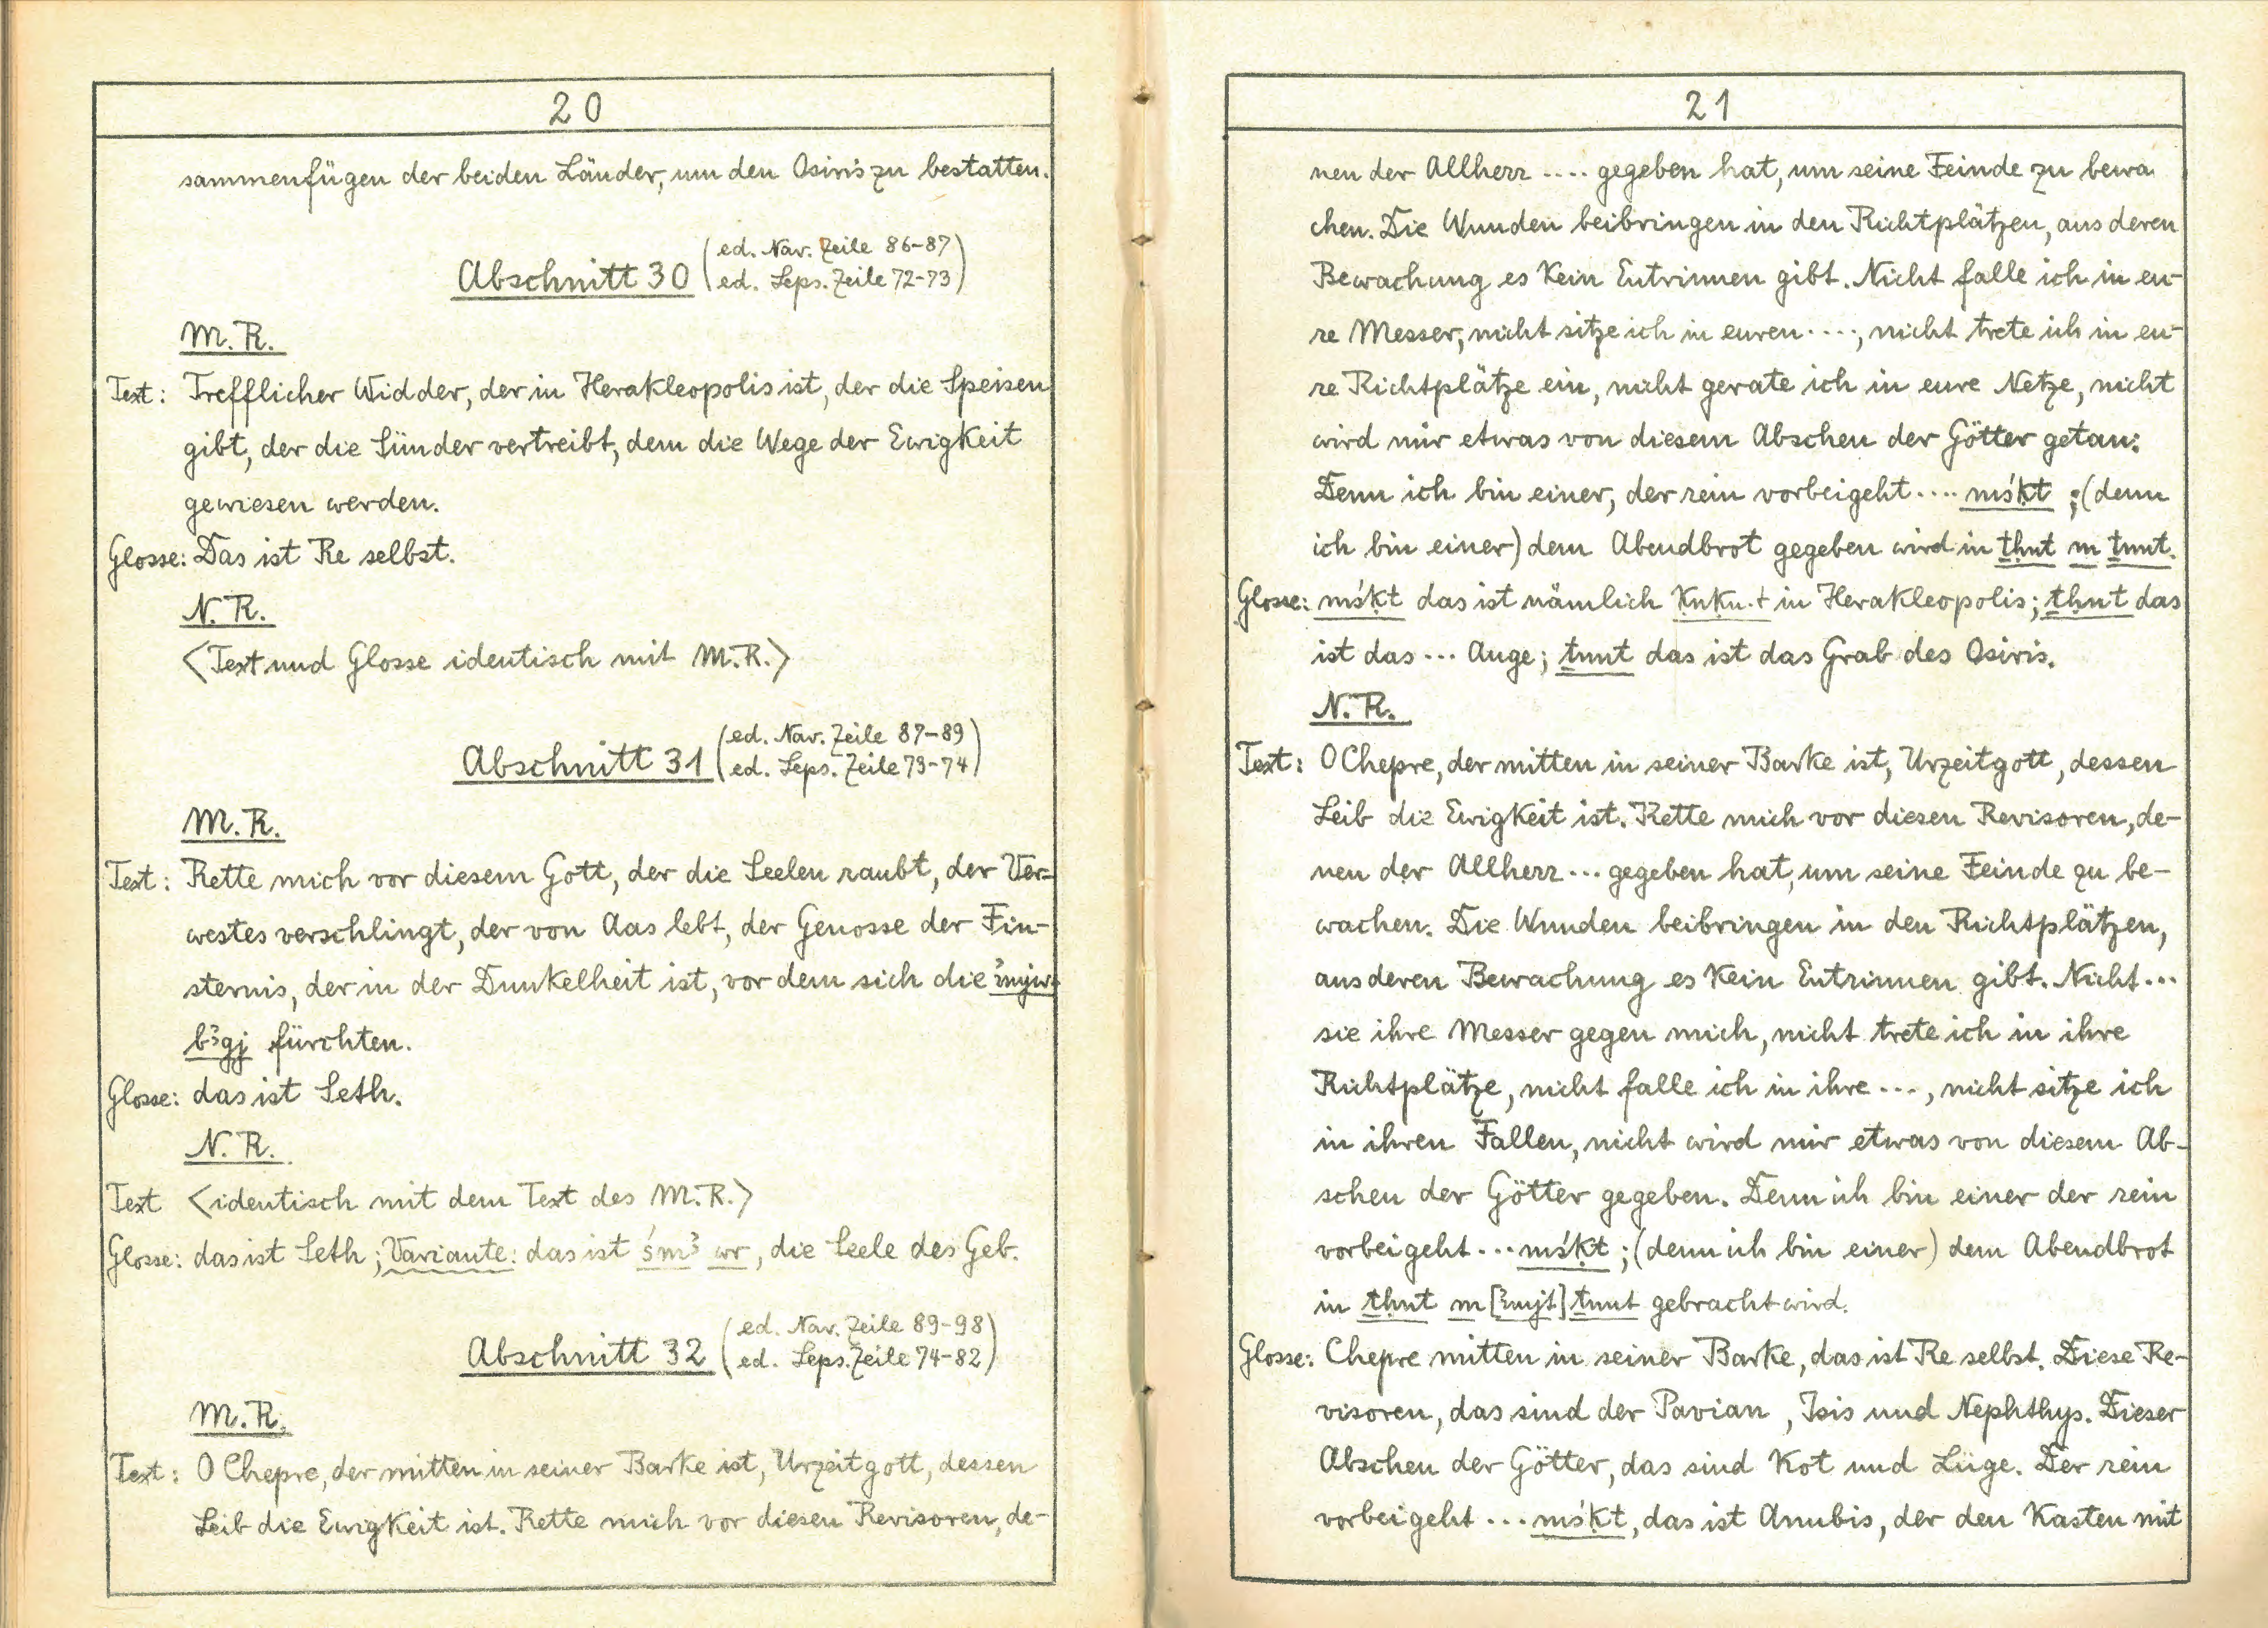 20
sammenfügen der beiden Länder, um den Osiris zu bestatten.
Abschnitt 30 (ed. Nav. Zeile 86-87
ed. Leps. Zeile 72-73)
M.R.
Text: Trefflicher Widder, der in Herakleopolis ist, der die Speisen
gibt, der die Sünder vertreibt, dem die Wege der Ewigkeit
gewiesen werden.
Glosse: Das ist Re selbst.
N.R.
<Text und Glosse identisch mit M.R.>
Abschnitt 31 (ed. Nav. Zeile 87-89
ed. Leps. Zeile 73-74)
M.R.
Text: Rette mich vor diesem Gott, der die Seelen raubt, der Ver-
westes verschlingt, der von Aas lebt, der Genosse der Fin-
sternis, der in der Dunkelheit ist, vor dem sich die
bꜣgj fürchten.
Glosse: das ist Seth.
N.R.
Text <identisch mit dem Text des M.R.>
Glosse: das ist Seth; Variante: das ist śmꜣ wr, die Seele des Geb.
Abschnitt 32 (ed. Nav. Zeile 89-98
ed. Leps. Zeile 74-82)
M.R.
Text: O Chepre, der mitten in seiner Barke ist, Urzeitgott, dessen
Leib die Ewigkeit ist. Rette mich vor diesen Revisoren, de-
21
nen der Allherr .... gegeben hat, um seine Feinde zu bewa
chen. Die Wunden beibringen in den Richtplätzen, aus deren
Bewachung es kein Entrinnen gibt. Nicht falle ich in eu-
re Messer, nicht sitze ich in euren ...., nicht trete ich in eu-
re Richtplätze ein, nicht gerate ich in eure Netze, nicht
wird mir etwas von diesem Abscheu der Götter getan:
Denn ich bin einer, der rein vorbeigeht .... mśḳt ; (denn
ich bin einer) dem Abendbrot gegeben wird in ṯḥnt m ṯnnt.
Glosse: mśḳt das ist nämlich in Herakleopolis; ṯḥnt das
ist das ... Auge; ṯnnt das ist das Grab des Osiris.
N.R.
Text: O Chepre, der mitten in seiner Barke ist, Urzeitgott, dessen
Leib die Ewigkeit ist. Rette mich vor diesen Revisoren, de-
nen der Allherr ... gegeben hat, um seine Feinde zu be-
wachen. Die Wunden beibringen in den Richtplätzen,
aus deren Bewachung es kein Entrinnen gibt. Nicht ...
sie ihre Messer gegen mich, nicht trete ich in ihre
Richtplätze, nicht falle ich in ihre ..., nicht sitze ich
in ihren Fallen, nicht wird mir etwas von diesem Ab-
scheu der Götter gegeben. Denn ich bin einer der rein
vorbeigeht ... mśḳt ; (denn ich bin einer) dem Abendbrot
in ṯḥnt m ṯnnt gebracht wird.
Glosse: Chepre mitten in seiner Barke, das ist Re selbst. Diese Re-
visoren, das sind der Pavian, Isis und Nephthys. Dieser
Abscheu der Götter, das sind Kot und Lüge. Der rein
vorbeigeht ... mśḳt, das ist Anubis, der den Kasten mit